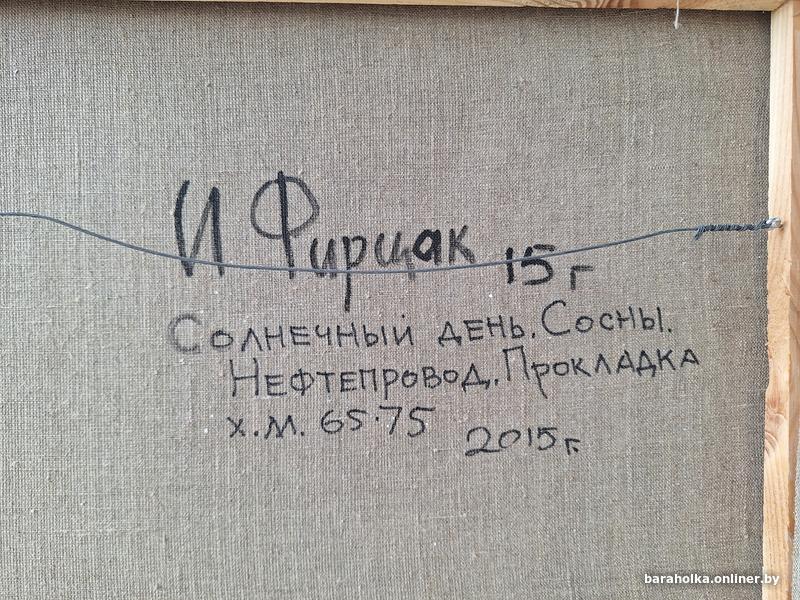 И Фирцак 15 г
Солнечный день. Сосны.
Нефтепровод. Прокладка
х.м. 65·75 2015г.
baraholka.onliner.by